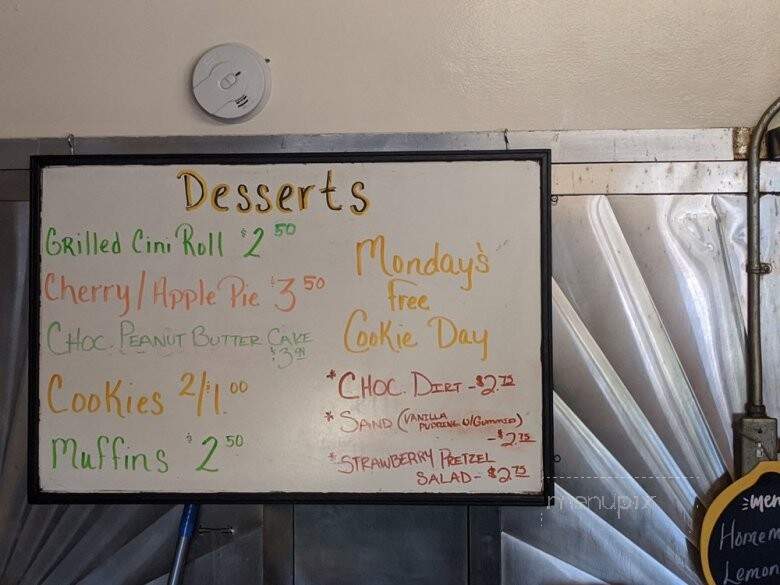 Desserts
Grilled Cini Roll $2 50
Cherry/Apple Pie $3 50
Choc. Peanut Butter Cake
$3.99
Cookies 2/$1.00
Muffins $2 50
Monday's
Free
Cookie Day
*Choc. Dirt - $2.75
* Sand (Vanilla
Pudding w/Gummies)
- $2.75
*Strawberry Pretzel
Salad - $2 75
menupix